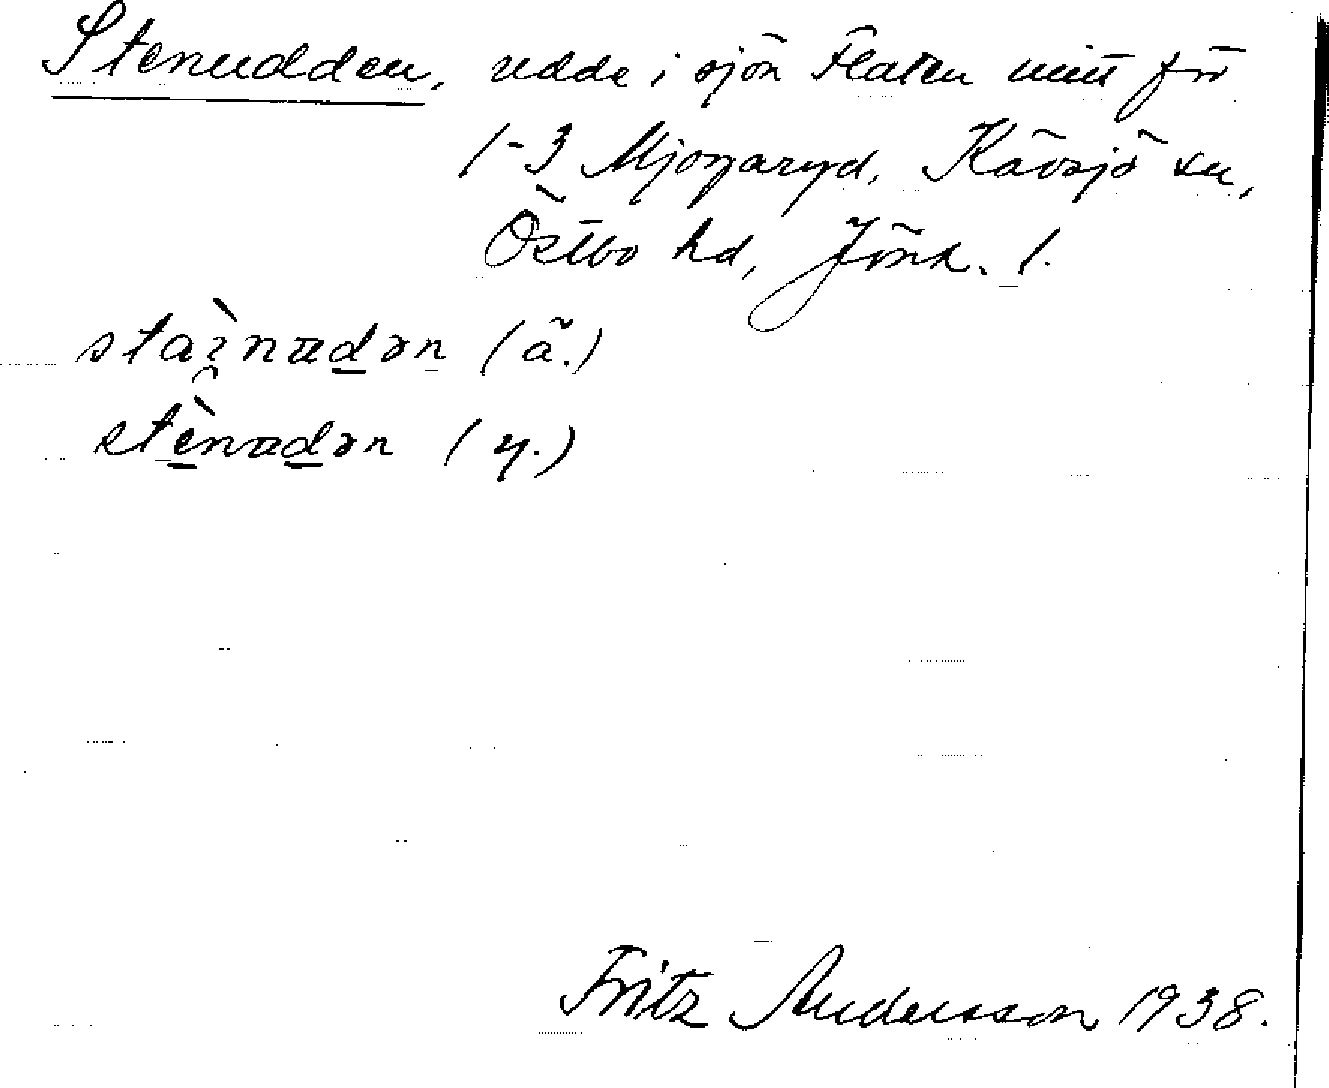 Stenudden, udde i sjön Flaten mitt för
1-3 Mjogaryd, Kävsjö sn,
Östbo hd, Jönk. l.
(ä.)
(y.)
Fritz Andersson 1938.